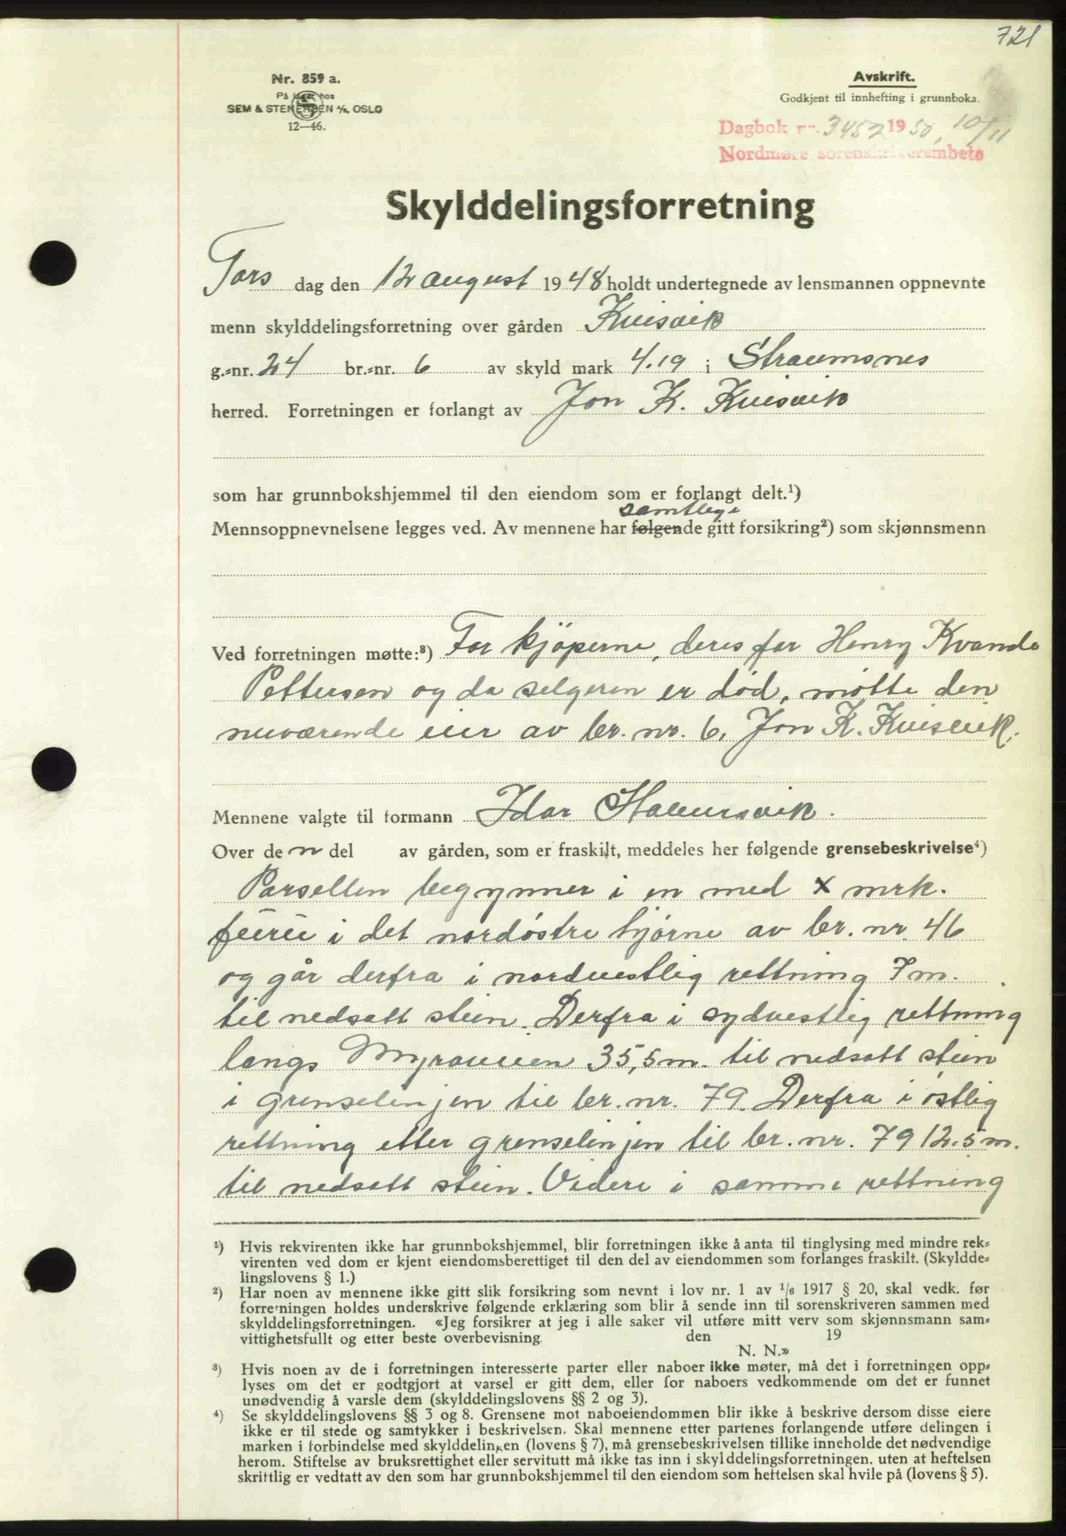 721
Nr. 859 a.
På lager hos
SEM & STENERSEN A/S, OSLO
12—46.
Avskrift.
Godkjent til innhefting i grunnboka.
Dagbok nr. 3452 1950, 10/11
Nordmøre sorenskriverembete
Skylddelingsforretning
Tors dag den 12 august 1948 holdt undertegnede av lensmannen oppnevnte
menn skylddelingsforretning over gården Kvisvik
g.-nr. 24 br.-nr. 6 av skyld mark 4.19 i Straumsnes
herred. Forretningen er forlangt av Jon K. Kvisvik
som har grunnbokshjemmel til den eiendom som er forlangt delt.¹)
samtlige
Mennsoppnevnelsene legges ved. Av mennene har følgende gitt forsikring²) som skjønnsmenn
Ved forretningen møtte:³) For kjøperne, deres far Henry Kvande
Pettersen og da selgeren er død, møtte den
nuværende eier av br. nr. 6, Jon K. Kvisvik.
Mennene valgte til formann Idar Halvorsvik.
Over den del av gården, som er fraskilt, meddeles her følgende grensebeskrivelse⁴)
Parsellen begynner i en med x mrk.
furu i det nordøstre hjørne av br. nr. 46
og går derfra i nordvestlig rettning 7 m.
til nedsatt stein. Derfra i sydvestlig rettning
langs Myraveien 35,5 m. til nedsatt stein
i grenselinjen til br. nr. 79. Derfra i østlig
rettning etter grenselinjen til br. nr. 79 12.5 m.
til nedsatt stein. Videre i samme rettning
¹) Hvis rekvirenten ikke har grunnbokshjemmel, blir forretningen ikke å anta til tinglysing med mindre rek-
virenten ved dom er kjent eiendomsberettiget til den del av eiendommen som forlanges fraskilt. (Skyldde-
lingslovens § 1.)
²) Har noen av mennene ikke gitt slik forsikring som nevnt i lov nr. 1 av 1/6 1917 § 20, skal vedk. før
forretningen holdes underskrive følgende erklæring som blir å sende inn til sorenskriveren sammen med
skylddelingsforretningen. «Jeg forsikrer at jeg i alle saker vil utføre mitt verv som skjønnsmann sam-
vittighetsfullt og etter beste overbevisning den 19
N. N.»
³) Hvis noen av de i forretningen interesserte parter eller naboer ikke møter, må det i forretningen opp-
lyses om det er godtgjort at varsel er gitt dem, eller for naboers vedkommende om det er funnet
unødvendig å varsle dem (skylddelingslovens §§ 2 og 3).
⁴) Se skylddelingslovens §§ 3 og 8. Grensene mot naboeiendommen blir ikke å beskrive dersom disse eiere
ikke er til stede og samtykker i beskrivelsen. Skal mennene etter partenes forlangende utføre delingen i
marken i forbindelse med skylddelingen (lovens § 7), må grensebeskrivelsen tillike inneholde det nødvendige
herom. Stiftelse av bruksrettighet eller servitutt må ikke tas inn i skylddelingsforretningen, uten at heftelsen
skrittlig er vedtatt av den som har grunnbokshjemmel til den eiendom som heftelsen skal hvile på (lovens § 5).